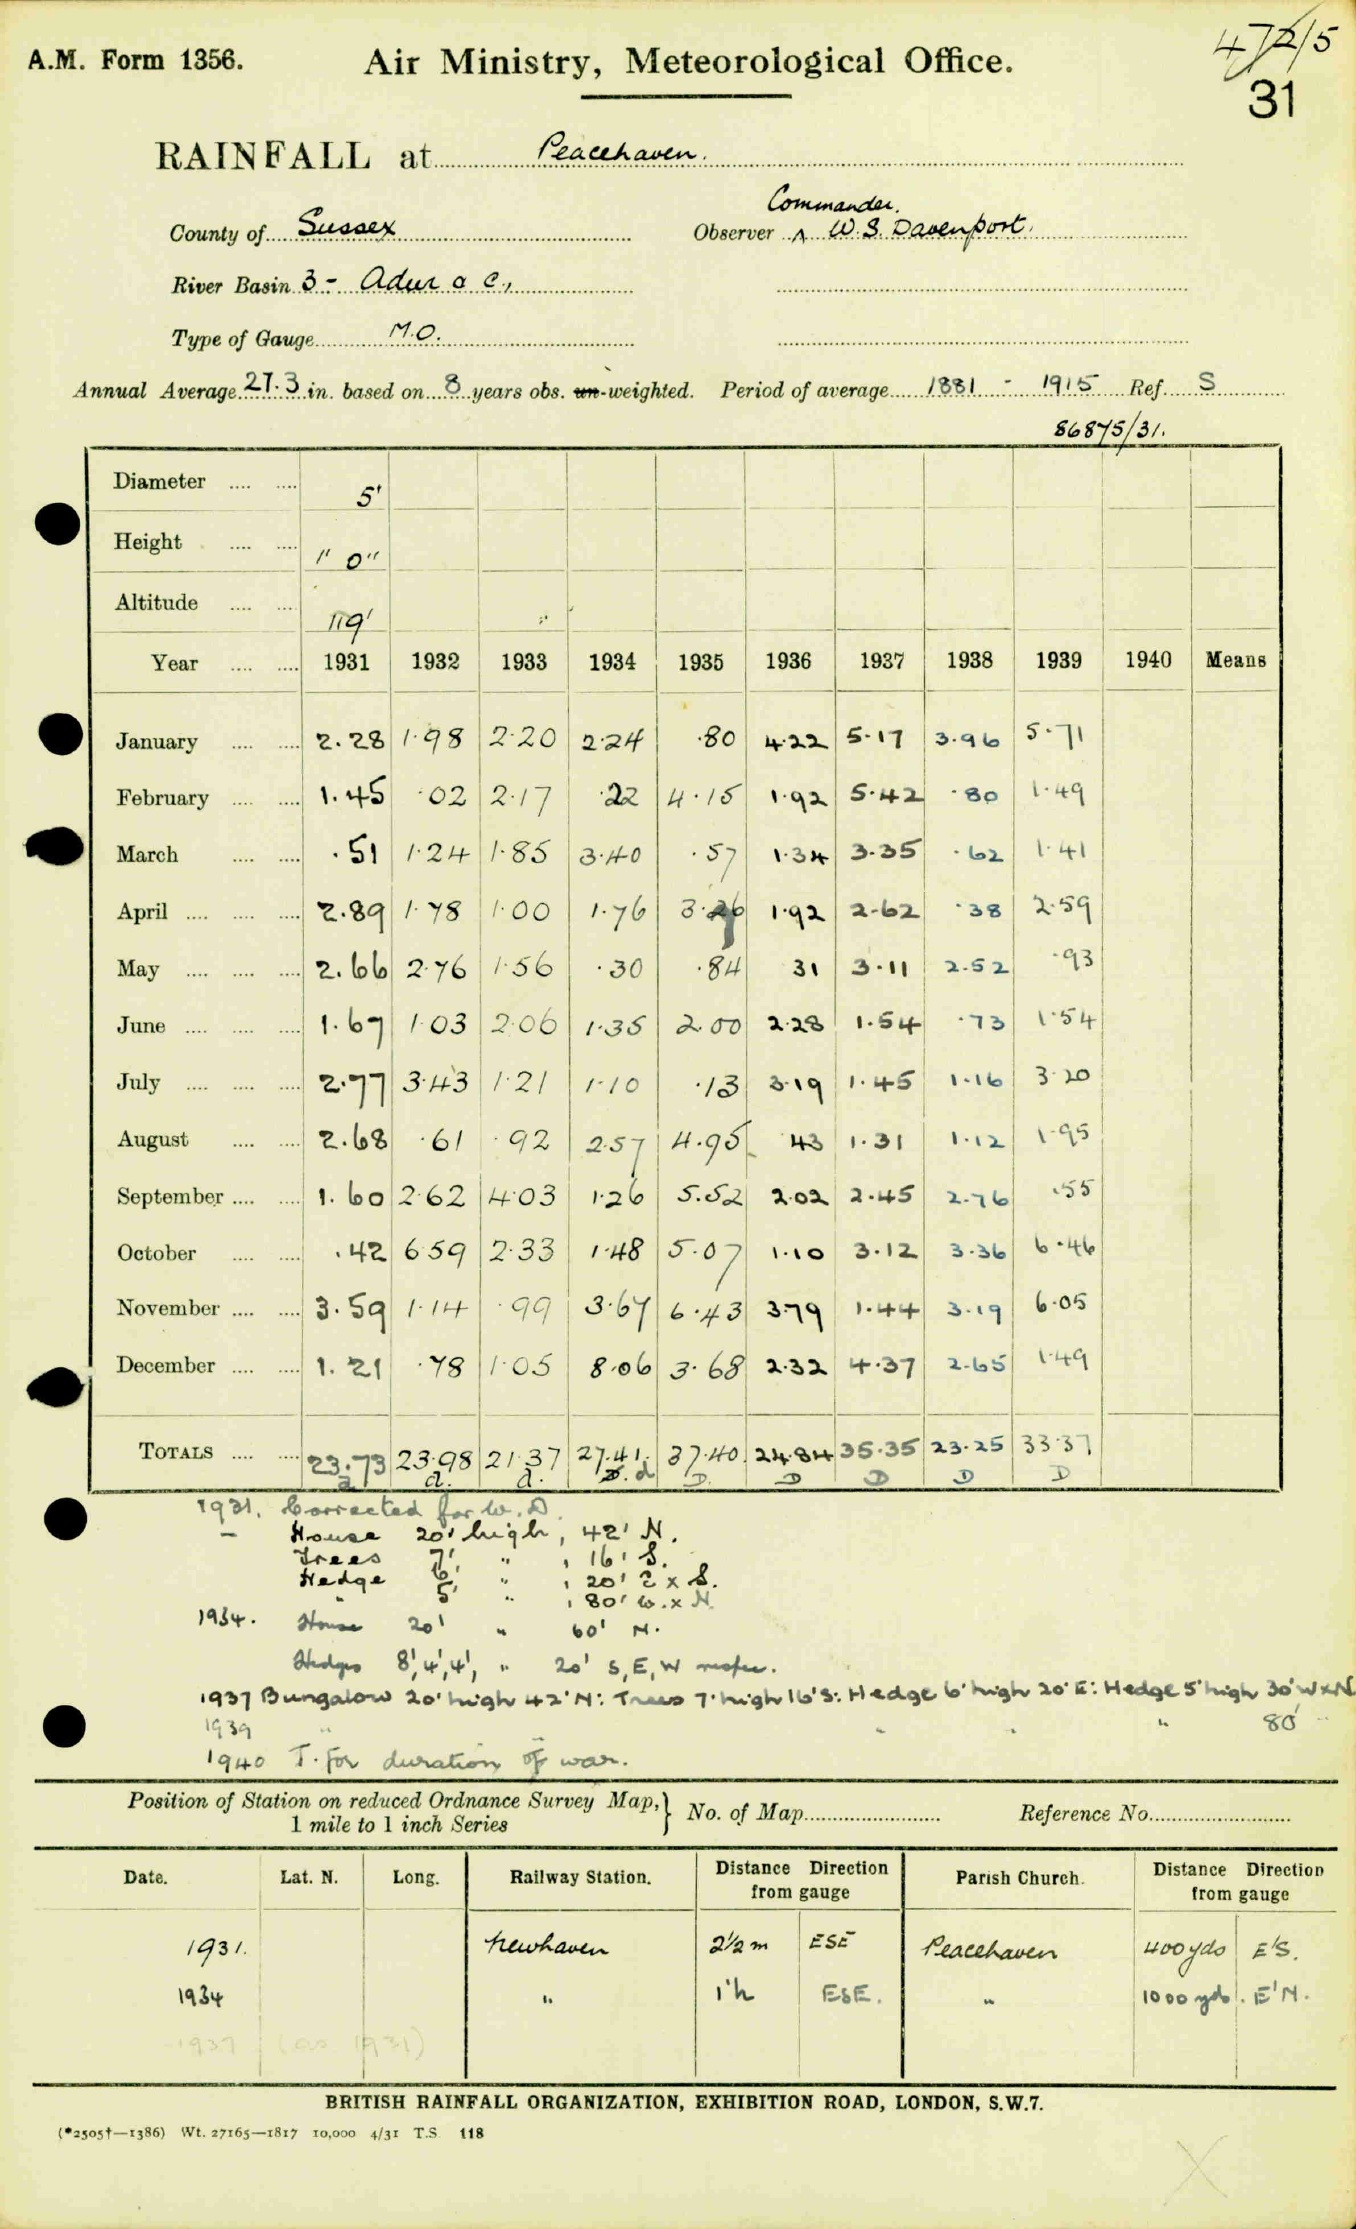 A.M. Form 1356.
Air Ministry, Meteorological Office.
472/5
31
RAINFALL at Peacehaven.
Commander.
County of Sussex Observer ^ W.S. Davenport.
River Basin 3 - Adur & C.,
Type of Gauge M.O.
Annual Average 27.3 in. based on 8 years obs. un-weighted. Period of average 1881 - 1915 Ref. S
86875/31.
Diameter 5'
Height 1" 0"
Altitude 119'
Year 1931 1932 1933 1934 1935 1936 1937 1938 1939 1940 Means
January 2.28 1.98 2.20 2.24 .80 4.22 5.17 3.96 5.71
February 1.45 .02 2.17 .22 4.15 1.92 5.42 .80 1.49
March .51 1.24 1.85 3.40 .57 1.34 3.35 .62 1.41
April 2.89 1.78 1.00 1.76 3.26 1.92 2.62 .38 2.59
May 2.66 2.76 1.56 .30 .84 31 3.11 2.52 .93
June 1.67 1.03 2.06 1.35 2.00 2.28 1.54 .73 1.54
July 2.77 3.43 1.21 1.10 .13 3.19 1.45 1.16 3.20
August 2.68 .61 .92 2.57 4.95 43 1.31 1.12 1.95
September 1.60 2.62 4.03 1.26 5.52 2.02 2.45 2.76 .55
October .42 6.59 2.33 1.48 5.07 1.10 3.12 3.36 6.46
November 3.59 1.14 .99 3.67 6.43 3.79 1.44 3.19 6.05
December 1.21 .78 1.05 8.06 3.68 2.32 4.37 2.65 1.49
TOTALS 23.73 23.98 21.37 27.41 37.40 24.84 35.35 23.25 33.37
a d. d. d D. D D D D
1931. Corrected for W.D.
– House 20' high, 42' N.
Trees 7' " , 16' S.
Hedge 6' " , 20' E x S.
" 5' " , 80' W. x N.
1934. House 20' " 60' N.
Hedges 8', 4', 4', " 20' S, E, W respec.
1937 Bungalow 20' high 42' N: Trees 7' high 16' S: Hedge 6' high 20' E: Hedge 5' high 30' W x N
1939 " " " " 80' "
1940 T. for duration of war.
Position of Station on reduced Ordnance Survey Map, } No. of Map Reference No.
1 mile to 1 inch Series
Date. Lat. N. Long. Railway Station. Distance Direction from gauge Parish Church. Distance Direction from gauge
1931. Newhaven 2½ m ESE Peacehaven 400 yds E'S.
1934 " ESE. " 1000 yds. E'N.
1937 (as 1931)
BRITISH RAINFALL ORGANIZATION, EXHIBITION ROAD, LONDON, S.W.7.
(*2505†—1386) Wt. 27165—1817 10,000 4/31 T.S. 118